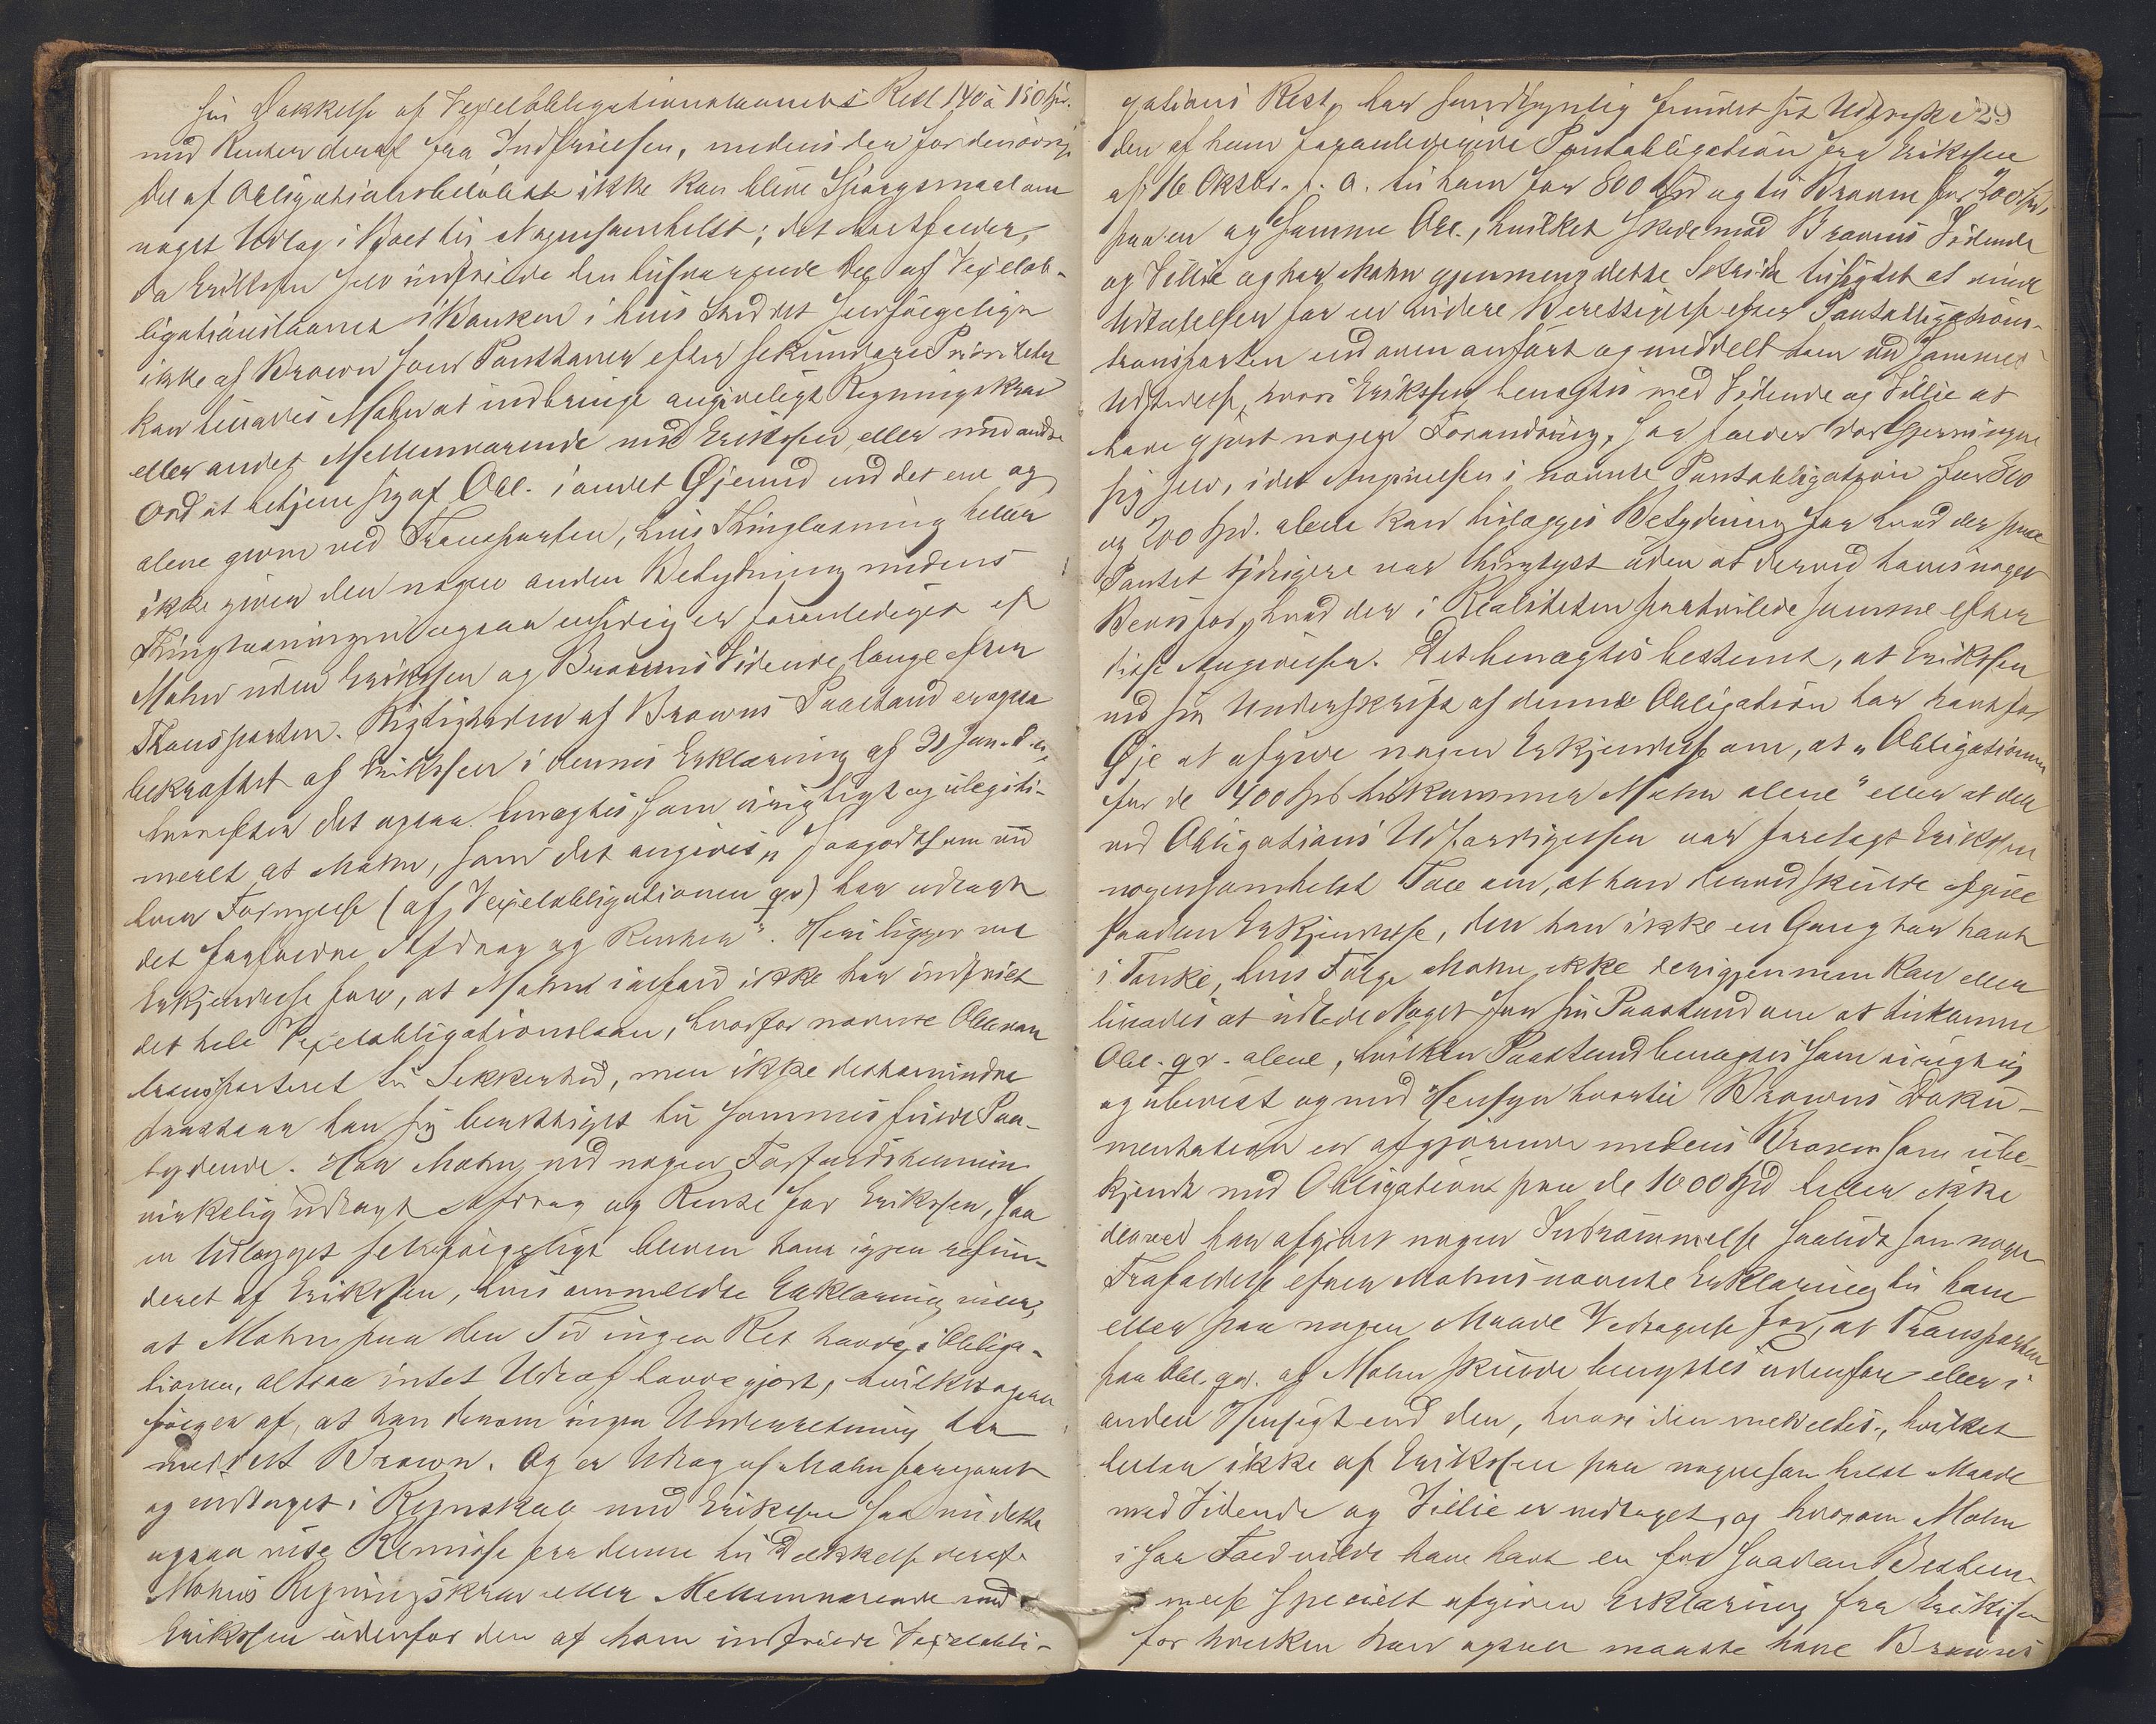 sin Dækkelse af Vexelobligationslaanets Rest 140 à 150 Spd.
med Renter deraf fra Indfrielsen, medens der for den øvrige
Del af Obligationsbeløbet ikke kan blive Spørgsmaal om
noget Udlæg i Boet til Nogensomhelst; det bortfalder,
da Erikssen selv indfriede den tilsvarende Del af Vexelob-
ligationslaanet i Banken i hvis Sted det selvfølgelig
ikke af Brown som Panthaver efter sekundære Prioriteter
kan tillades Mohn at indbringe angiveligt Regningskrav
eller andet Mellemværende med Erikssen, eller med andre
Ord at betjene sig af Obl. i andet Øjemed end det ene og
alene givne ved Transporten, hvis Thinglæsning heller
ikke giver den nogen anden Betydning medens
Thinglæsningen ogsaa ensidig er foranlediget af
Mohn uden Erikssen og Browns Vidende længe efter
Transporten. Rigtigheden af Browns Paastand er ogsaa
bekræftet af Erikssen i dennes Erklæring af 31 Jan. d. A.,
hvorefter det ogsaa benægtes som urigtigt og ulegiti-
meret at Mohn, som det angives, "saagodtsom ved
hver Fornyelse (af Vexelobligationen qv.) har udlagt
det forfaldne Afdrag og Renter". Heri ligger en
Erkjendelse for, at Mohn ialfald ikke har indfriet
det hele Vexelobligationslaan, hvorfor nævnte Obl. var
transporteret til Sikkerhed, men ikke destomindre
paastaar han sig berettiget til sammes fulde Paa-
lydende. Har Mohn ved nogen Forfaldstermin
virkelig udlagt Afdrag og Rente for Erikssen, saa
er Udlægget selvfølgeligt bleven ham igjen refun-
deret af Erikssen, hvis anmeldte Erklæring viser,
at Mohn paa den Tid ingen Ret havde i Obliga-
tionen, altsaa intet Udlæg havde gjort, hvilket ogsaa
følger af, at han derom ingen Underretning har
meddelt Brown. Og er Udlæg af Mohn foregaaet
og indtaget i Regnskab med Erikssen saa vil dette
ogsaa vise Remisse fra denne til Dækkelse deraf.
Mohns Regningskrav eller Mellemværende med
Erikssen udenfor den af ham indfriede Vexelobli-
29
gations Rest, har sandsynlig fundet sit Udtryk i
den af ham foranledigede Pantobligation fra Erikssen
af 16 Oktbr. f. A. til ham for 800 Spd og til Brown for 200 Spd,
paa en og samme Obl., hvilket skede mod Browns Vidende
og Villie og har Mohn gjennem dette Skridt tilsigtet at vinde
Udtalelsen for en videre Berettigelse efter Pantobligations-
transporten end oven anført og meddelt ham ved sammes
Udstedelse, hvori Erikssen benægtes med Vidende og Villie at
have gjort nogen Forandring, saa falder dog Gjerningen
sig selv, idet Angivelsen i nævnte Pantobligation for 800
og 200 Spd. alene kan tillægges Betydning for hvad der paa
Pantet tidligere var thinglyst uden at derved haves noget
Bevis for, hvad der i Realiteten paahvilede samme efter
disse Angivelser. Det benægtes bestemt, at Erikssen
ved sin Underskrift af denne Obligation har havt for
Øje at afgive nogen Erkjendelse om, at "Obligationen
for de 400 Spd tilkommer Mohn alene" eller at der
ved Obligations Udfærdigelsen var forelagt Erikssen
nogensomhelst Tale om, at han derved skulde afgive
saadan Erkjendelse, den han ikke en Gang har havt
i Tanke, hvis Følge Mohn ikke derigjennem kan eller
tillades at udlede Noget for sin Paastand om at tilkomme
Obl. qv. alene, hvilken Paastand benægtes som urigtig
og ubevist og med Hensyn hvortil Browns Doku-
mentation er afgjørende medens Brown som ube-
kjendt med Obligationen paa de 1000 Spd heller ikke
derved har afgivet nogen Indrømmelse saalidt som nogen
Frafaldelse efter Mohns nævnte Erklæring til ham
eller paa nogen Maade Vedtagelse for, at Transporten
paa Obl. qv. af Mohn skulde benyttes udenfor eller i
anden Hensigt end den, hvori den meddeltes, hvilket
heller ikke af Erikssen paa nogensomhelst Maade
med Vidende og Villie er vedtaget, og hvorom Mohn
i saa Fald vilde have havt en for saadan Bestem-
melse specielt afgiven Erklæring fra Erikssen
for hvilken han ogsaa maatte have Browns